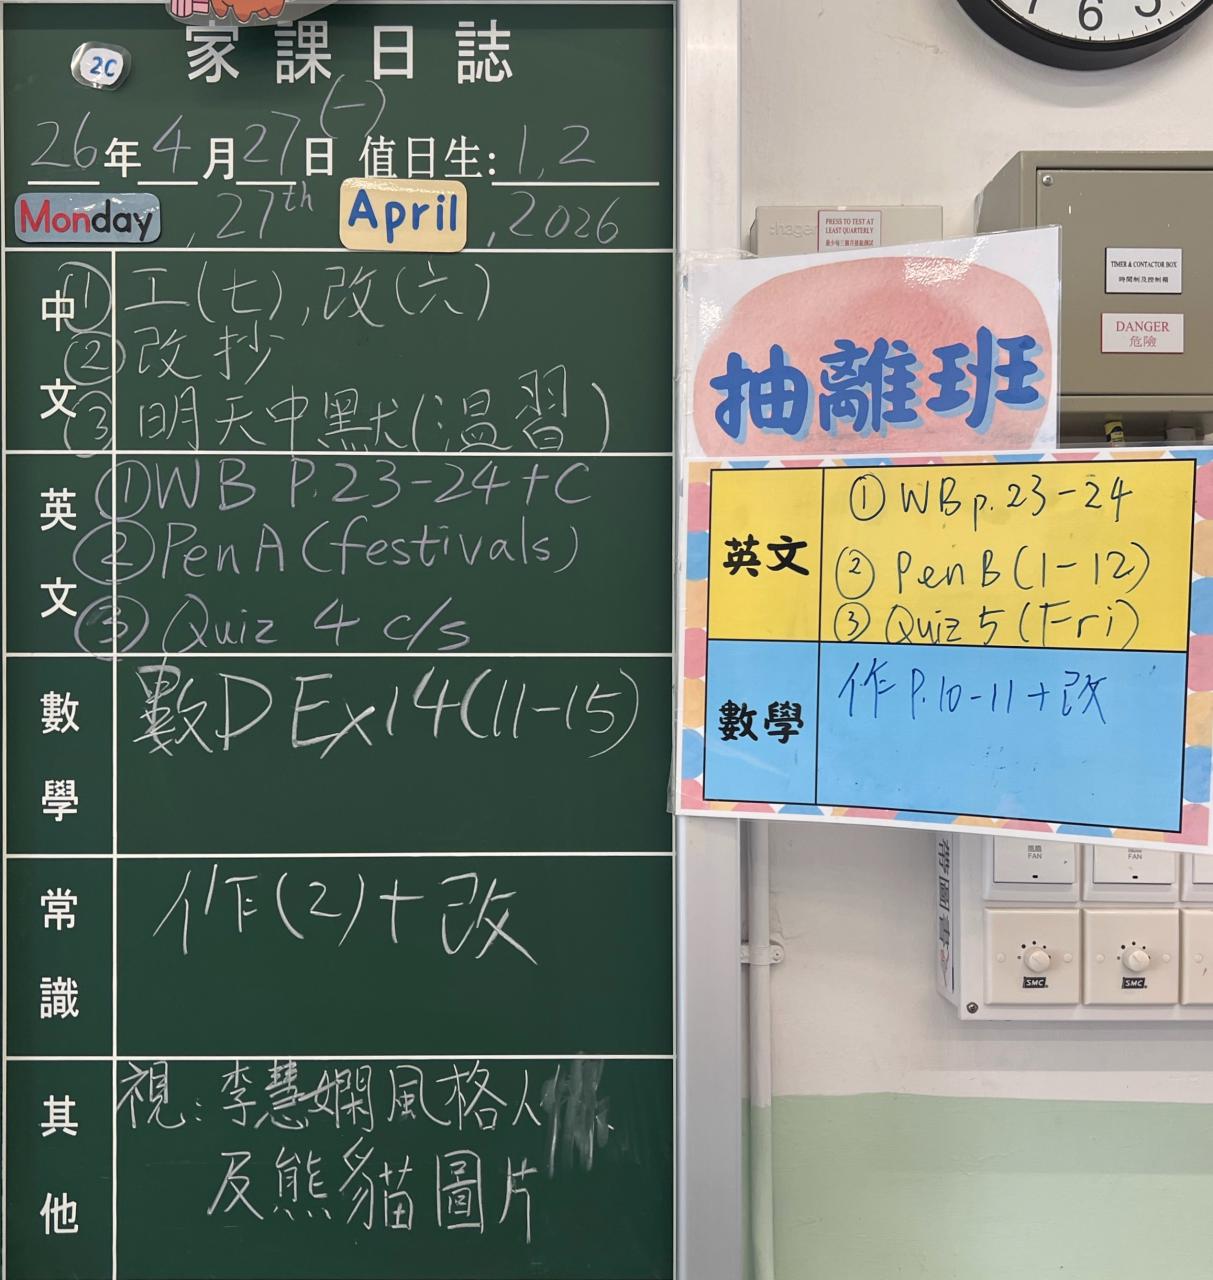 家課日誌
2C
26年4月27日(一) 值日生:1,2
Monday, 27th April, 2026
中文
①工(七),改(六)
②改抄
③明天中默(溫習)
英文
①WB P.23-24+C
②Pen A (festivals)
③Quiz 4 c/s
數學
數D Ex14(11-15)
常識
作(2)+改
其他
視:李慧嫻風格人
及熊貓圖片
7 6 5
:hager
PRESS TO TEST AT
LEAST QUARTERLY
TIMER & CONTACTOR BOX
時間制及控制箱
DANGER
危險
抽離班
英文
①WB p.23-24
②Pen B (1-12)
③Quiz 5 (Fri)
數學
作 P.10-11+改
FAN
FAN
SMC
SMC